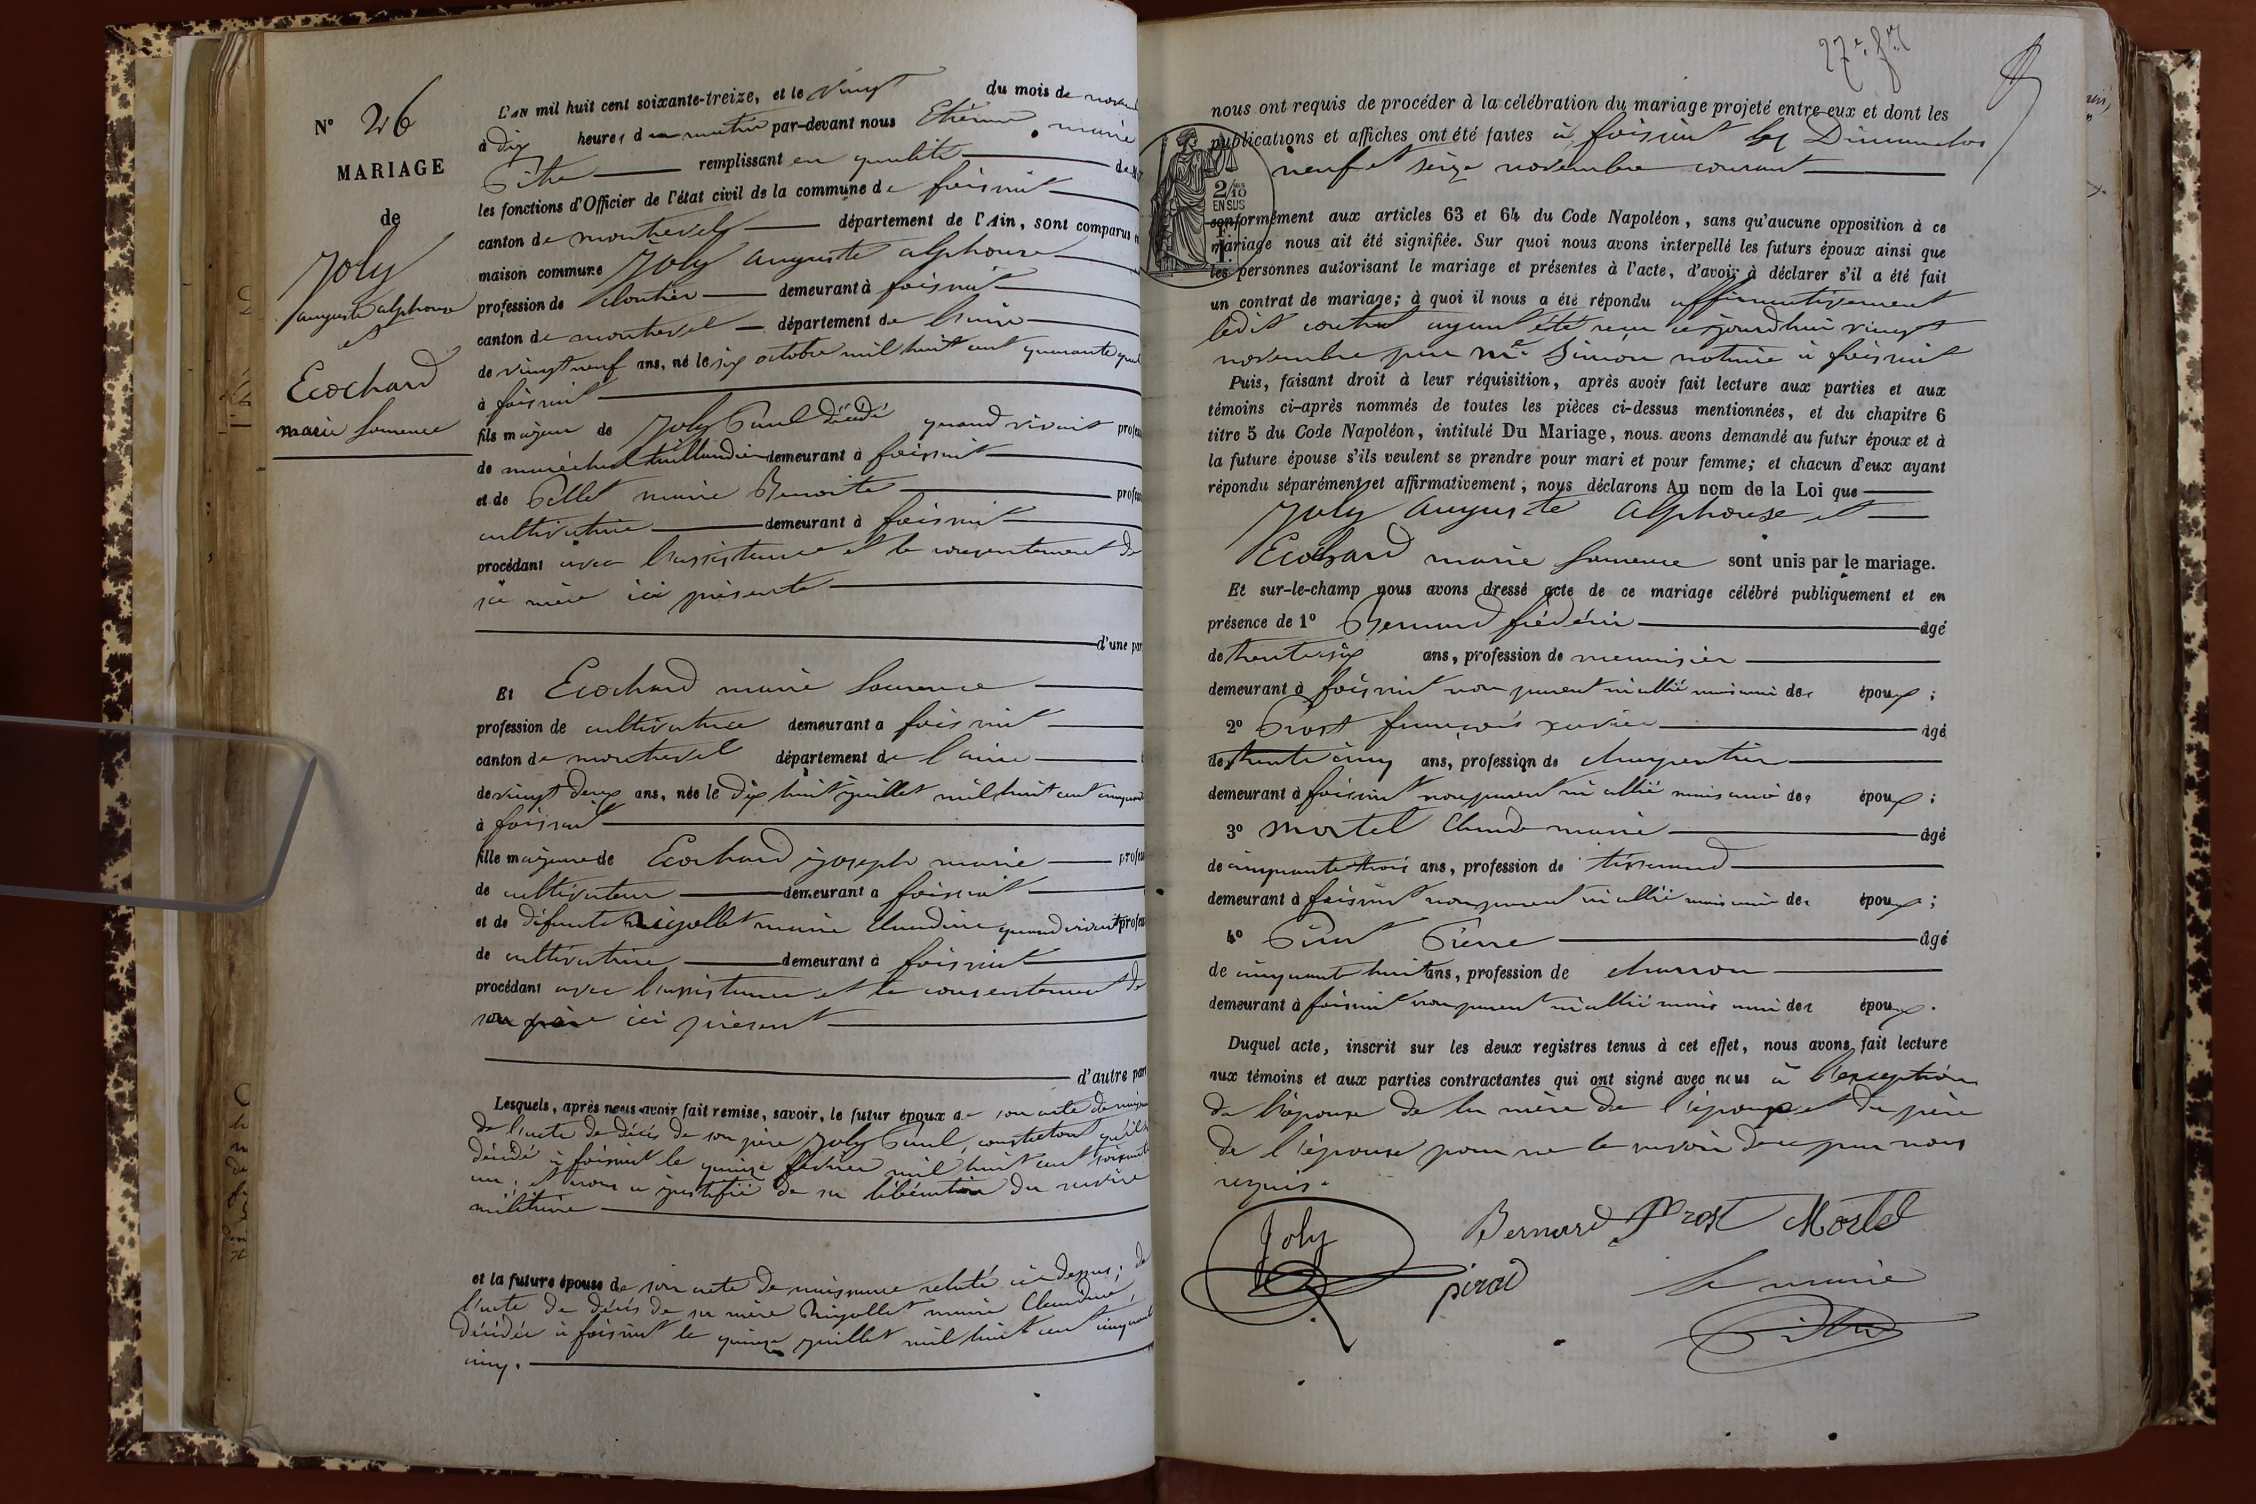 N° 26
MARIAGE
de
Joly
auguste alphonse
et
Ecochard
marie laurence
L'AN mil huit cent soixante-treize, et le vingt du mois de novem
à dix heures du matin par-devant nous Etienne maire
Pitre remplissant en qualité de
les fonctions d'Officier de l'état civil de la commune de foissiat
canton de montrevel département de l'Ain, sont comparus en
maison commune Joly auguste alphonse
profession de cloutier demeurant à foissiat
canton de montrevel département de l'ain
de vingt neuf ans, né le six octobre mil huit cent quarante qua
à foissiat
fils majeur de Joly Paul décédé quand vivait profes
de maréchal taillandier demeurant à foissiat
et de Pellet marie Benoite profes
cultivatrice demeurant à foissiat
procédant avec l'assistance et le consentement de
sa mère ici présente
d'une par
Et Ecochard marie laurence
profession de cultivatrice demeurant à foissiat
canton de montrevel département de l'ain
de vingt deux ans, née le dix huit juillet mil huit cent cinquante
à foissiat
fille majeure de Ecochard joseph marie profes
de cultivateur demeurant à foissiat
et de défunte nigollet marie claudine quand vivait profes
de cultivatrice demeurant à foissiat
procédant avec l'assistance et le consentement de
son père ici présent
d'autre part
Lesquels, après nous avoir fait remise, savoir, le futur époux de son acte de nais
de l'acte de décès de son père Joly Paul, constatant qu'il
décédé à foissiat le quinze février mil huit cent soixante
un; et nous a justifié de sa libération du service
militaire
et la future épouse de son acte de naissance relaté ci dessus; de
l'acte de décès de sa mère Nigollet marie Claudine,
décédée à foissiat le quinze juillet mil huit cent cinquante
cinq.
27e
nous ont requis de procéder à la célébration du mariage projeté entre eux et dont les
publications et affiches ont été faites à foissiat les Dimanches
neuf et seize novembre courant
2/10
EN SUS
conformément aux articles 63 et 64 du Code Napoléon, sans qu'aucune opposition à ce
mariage nous ait été signifiée. Sur quoi nous avons interpellé les futurs époux ainsi que
les personnes autorisant le mariage et présentes à l'acte, d'avoir à déclarer s'il a été fait
un contrat de mariage; à quoi il nous a été répondu affirmativement
ledit contrat ayant été reçu cejourdhui vingt
novembre par me Simon notaire à foissiat
Puis, faisant droit à leur réquisition, après avoir fait lecture aux parties et aux
témoins ci-après nommés de toutes les pièces ci-dessus mentionnées, et du chapitre 6
titre 5 du Code Napoléon, intitulé Du Mariage, nous avons demandé au futur époux et à
la future épouse s'ils veulent se prendre pour mari et pour femme; et chacun d'eux ayant
répondu séparément et affirmativement, nous déclarons Au nom de la Loi que
Joly auguste alphonse et
Ecochard marie laurence sont unis par le mariage.
Et sur-le-champ nous avons dressé acte de ce mariage célébré publiquement et en
présence de 1° Bernard frédéric âgé
de trente six ans, profession de menuisier
demeurant à foissiat non parent ni allié mais ami des époux;
2° Prost françois xavier âgé
de trente cinq ans, profession de charpentier
demeurant à foissiat non parent ni allié mais ami des époux;
3° mortel Claude marie âgé
de cinquante trois ans, profession de tisserand
demeurant à foissiat non parent ni allié mais ami des époux;
4° Pirat Pierre âgé
de cinquante huit ans, profession de charron
demeurant à foissiat non parent ni allié mais ami des époux.
Duquel acte, inscrit sur les deux registres tenus à cet effet, nous avons fait lecture
aux témoins et aux parties contractantes qui ont signé avec nous à l'exception
de l'épouse de la mère de l'époux et du père
de l'épouse pour ne le savoir de ce par nous
requis.
Joly Bernard Prost Mortel
pirat le maire
Pitre